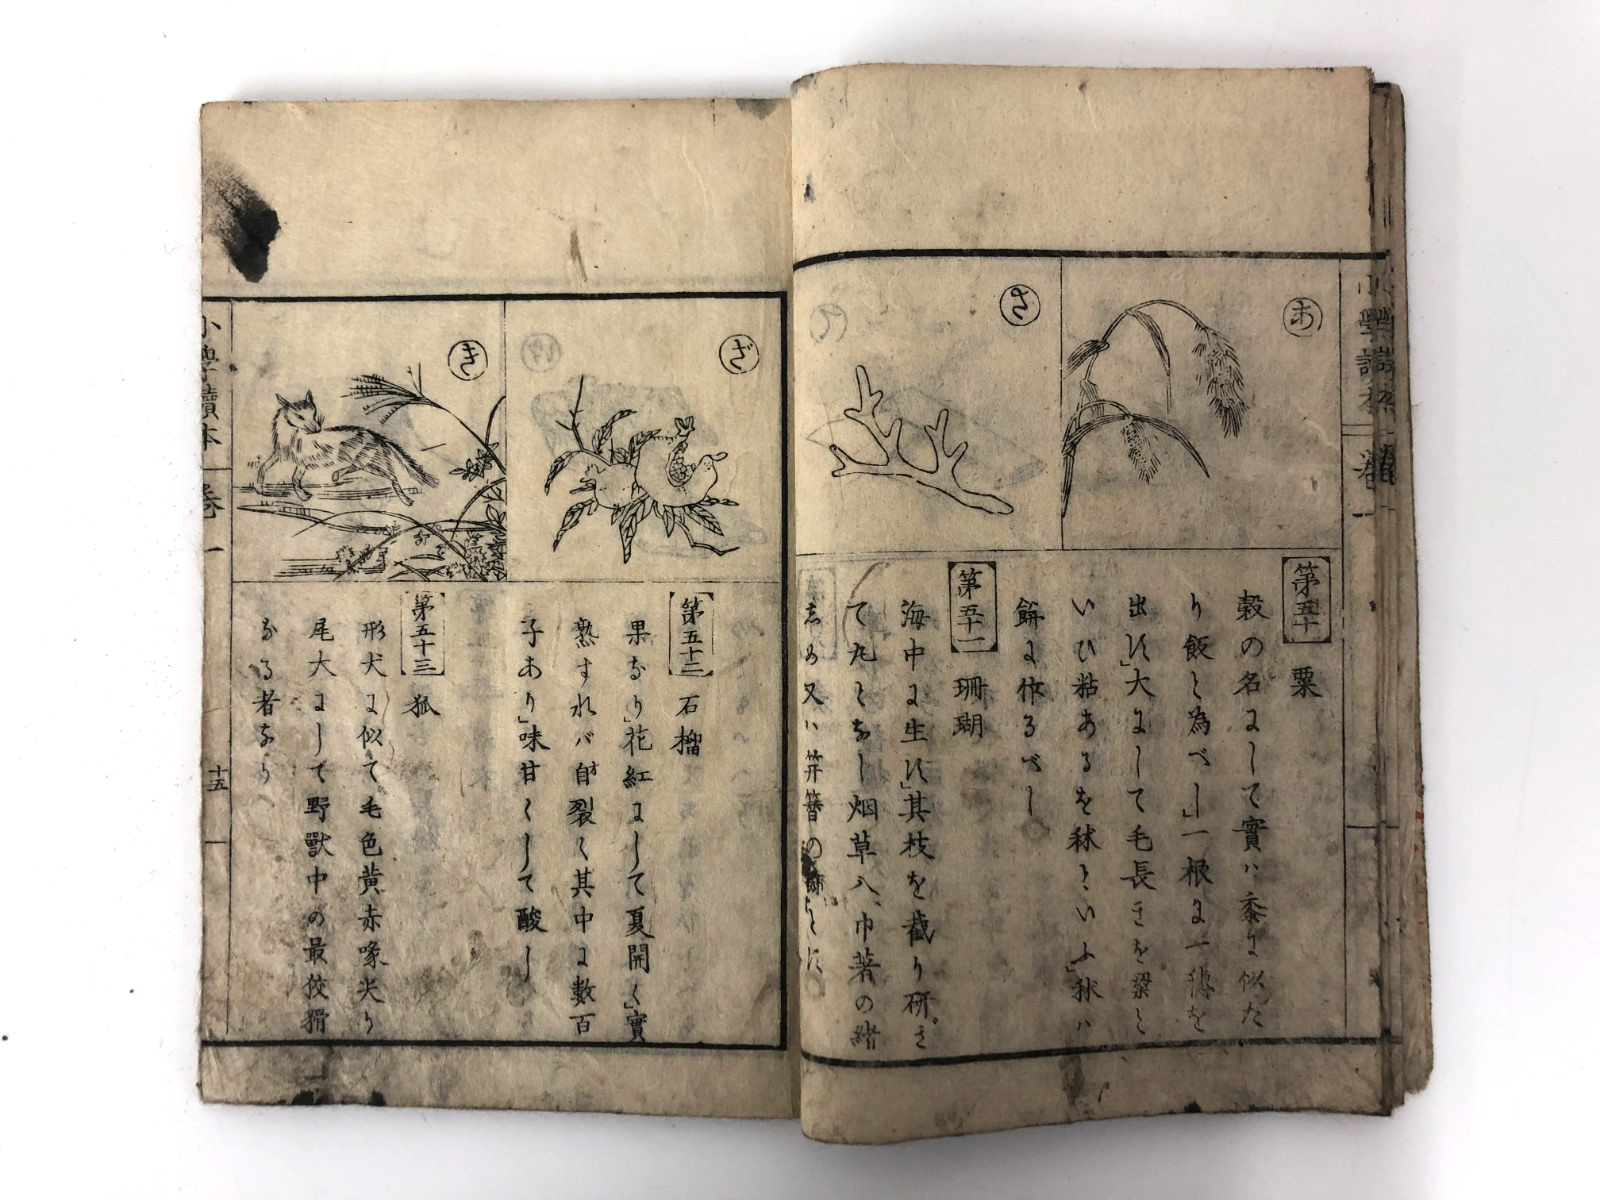 あ
第五十 粟
穀の名にして實ハ黍に似た
り飯と為べし」一根に一穂を
出す」大にして毛長きを粱と
いひ粘あるを秫といふ」秫ハ
餅に作るべし
さ
第五十一 珊瑚
海中に生す」其枝を截り研ぎ
て丸となし烟草入、巾著の緒
志め又ハ笄簪の
ざ
第五十二 石榴
果なり」花紅にして夏開く」實
熟すれバ自裂く其中に數百
子あり」味甘くして酸し
き
第五十三 狐
形犬に似て毛色黄赤喙尖り
尾大にして野獸中の最狡猾
なる者なり
小學讀本 卷一
十五